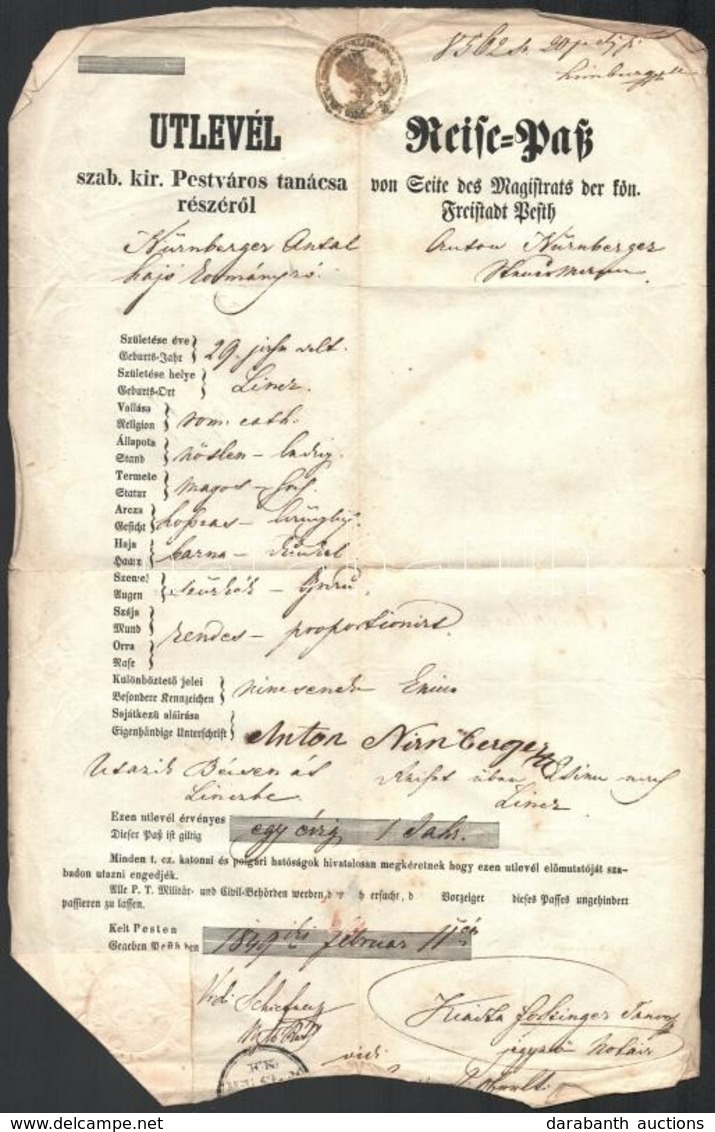 UTLEVÉL
szab. kir. Pestváros tanácsa
részéről
Reise=Paß
von Seite des Magistrats der kön.
Freistadt Pesth
Kürnberger Antal
hajó kormányzó.
Anton Kürnberger
Steuermann
Születése éve
Geburts-Jahr
29.
Születése helye
Geburts-Ort
Lincz.
Vallása
Religion
rom. cath.
Állapota
Stand
nőtlen – ledig
Termete
Statur
magos – hoch
Arcza
Gesicht
Haja
Haare
barna – dunkel
Szemei
Augen
szürkék – grau
Szája
Mund
Orra
Nase
rendes – proportionirt
Különböztető jelei
Besondere Kennzeichen
nincsenek
Sajátkezű aláirása
Eigenhändige Unterschrift
Anton Nirnberger
Utazik Bécsen át
Linczbe
Reiset über Wien nach
Lincz
Ezen utlevél érvényes
Dieser Paß ist giltig
egy évig 1 Jahr.
Minden t. cz. katonai és polgári hatóságok hivatalosan megkéretnek hogy ezen utlevél előmutatóját sza-
badon utazni engedjék.
Alle P. T. Militär- und Civil-Behörden werden ersucht, d Vorzeiger dieses Passes ungehindert
passieren zu lassen.
Kelt Pesten
Gegeben Pesth den
1849 februar 11
Kiadta
jegyző Notär
vidi
darabanth auctions